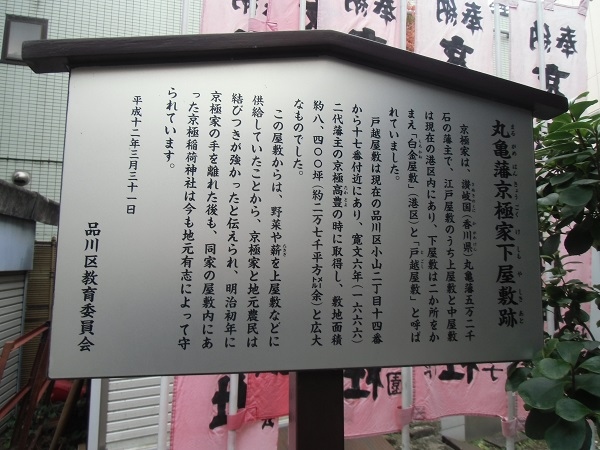 丸亀藩京極家下屋敷跡
京極家は、讃岐国(香川県)丸亀藩五万二千
石の藩主で、江戸屋敷のうち上屋敷と中屋敷
は現在の港区内にあり、下屋敷は二か所をか
まえ「白金屋敷」(港区)と「戸越屋敷」と呼ば
れていました。
戸越屋敷は現在の品川区小山二丁目十四番
から十七番付近にあり、寛文六年(一六六六)
二代藩主の京極高豊の時に取得し、敷地面積
約八、四〇〇坪(約二万七千平方㍍余)と広大
なものでした。
この屋敷からは、野菜や薪を上屋敷などに
供給していたことから、京極家と地元農民は
結びつきが強かったと伝えられ、明治初年に
京極家の手を離れた後も、同家の屋敷内にあ
った京極稲荷神社は今も地元有志によって守
られています。
平成十二年三月三十一日
品川区教育委員会
奉納
奉納
奉納
奉納